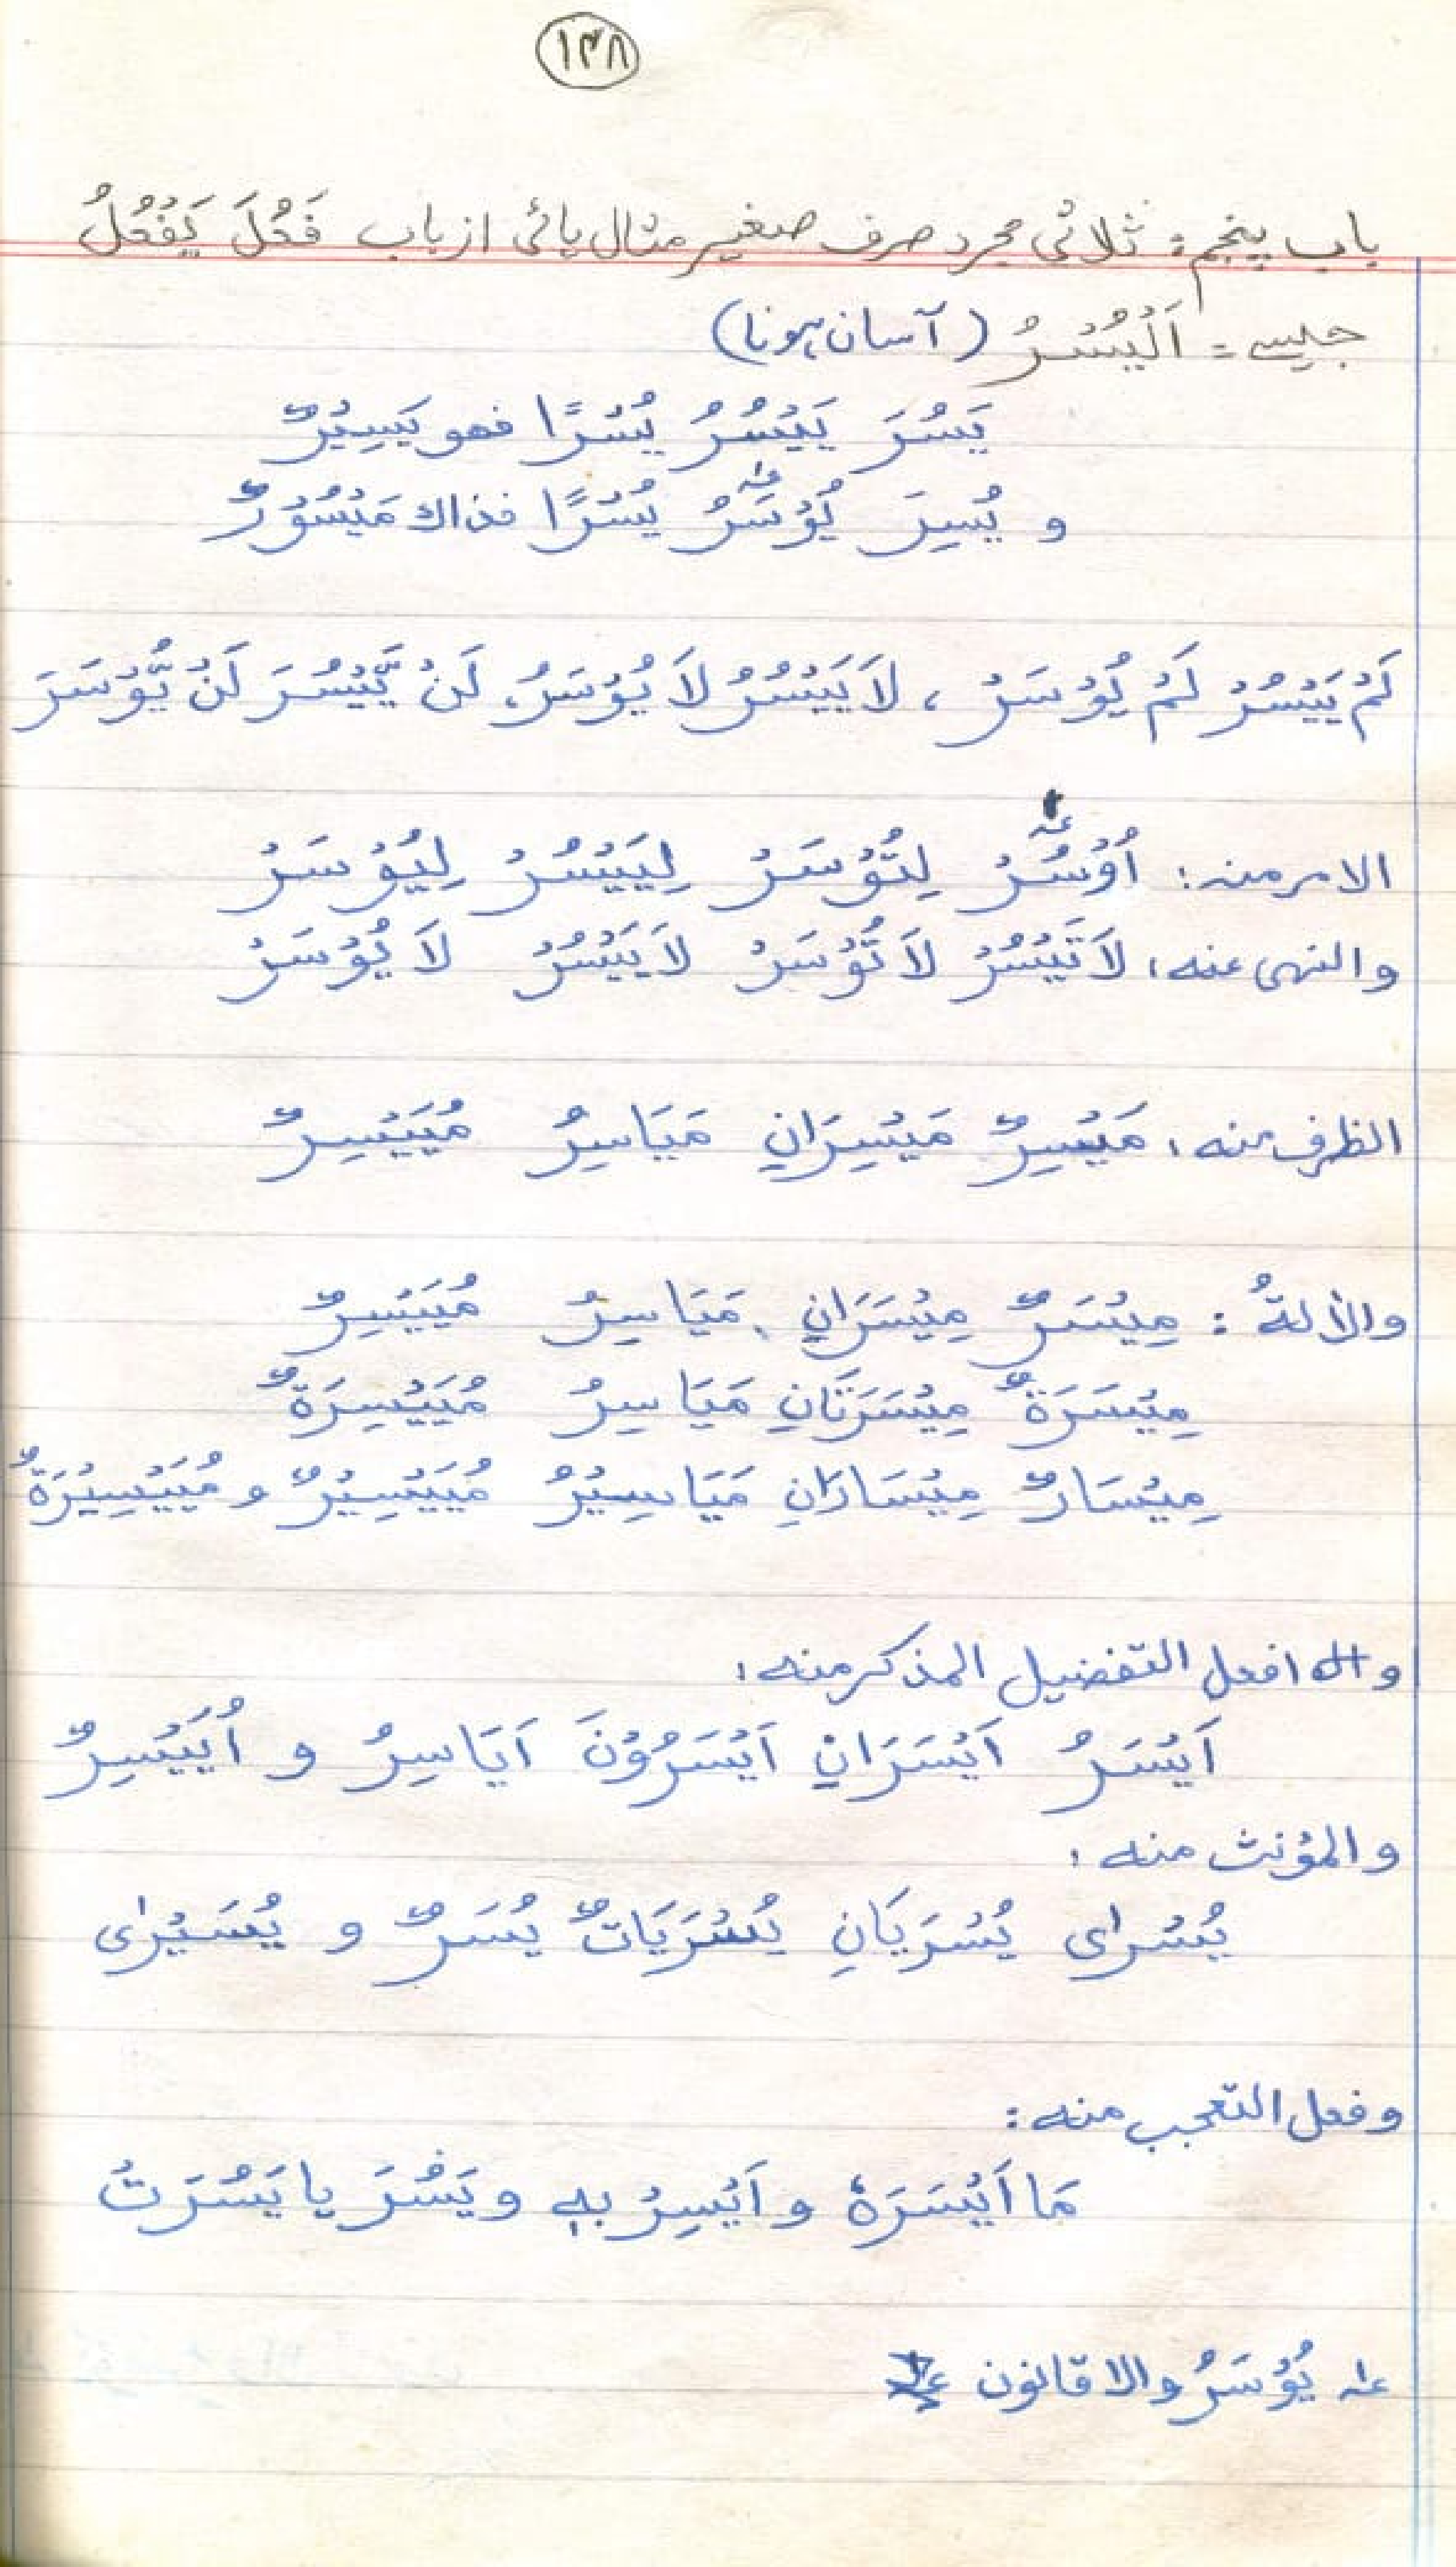 ۱۳۸
باب پنجم: ثلاثی مجرد صرف صغیر مثال یائی از باب فَعُلَ يَفْعُلُ
جیسے = اَلْيُسْرُ (آسان ہونا)
يَسُرَ يَيْسُرُ يُسْرًا فهو يَسِيْرٌ
و يُسِرَ يُوْسَرُ يُسْرًا فذاك مَيْسُوْرٌ
لَمْ يَيْسُرْ لَمْ يُوْسَرْ ، لَا يَيْسُرُ لَا يُوْسَرُ، لَنْ يَّيْسُرَ لَنْ يُّوْسَرَ
الامر منه: اُوْسُرْ لِتُوْسَرْ لِيَيْسُرْ لِيُوْسَرْ
والنهى عنه، لَا تَيْسُرْ لَا تُوْسَرْ لَا يَيْسُرْ لَا يُوْسَرْ
الظرف منه، مَيْسِرٌ مَيْسِرَانِ مَيَاسِرُ مُيَيْسِرٌ
والاٰلةُ : مِيْسَرٌ مِيْسَرَانِ مَيَاسِرُ مُيَيْسِرٌ
مِيْسَرَةٌ مِيْسَرَتَانِ مَيَاسِرُ مُيَيْسِرَةٌ
مِيْسَارٌ مِيْسَارَانِ مَيَاسِيْرُ مُيَيْسِيْرٌ و مُيَيْسِيْرَةٌ
و افعل التفضيل المذكر منه،
اَيْسَرُ اَيْسَرَانِ اَيْسَرُوْنَ اَيَاسِرُ و اُيَيْسِرٌ
والمؤنث منه،
يُسْرٰى يُسْرَيَانِ يُسْرَيَاتٌ يُسَرٌ و يُسَيْرٰى
وفعل التعجب منه:
مَا اَيْسَرَهٗ و اَيْسِرْ بِهٖ و يَسُرَ يا يَسُرَتْ
عـہ يُوْسَرُ والا قانون